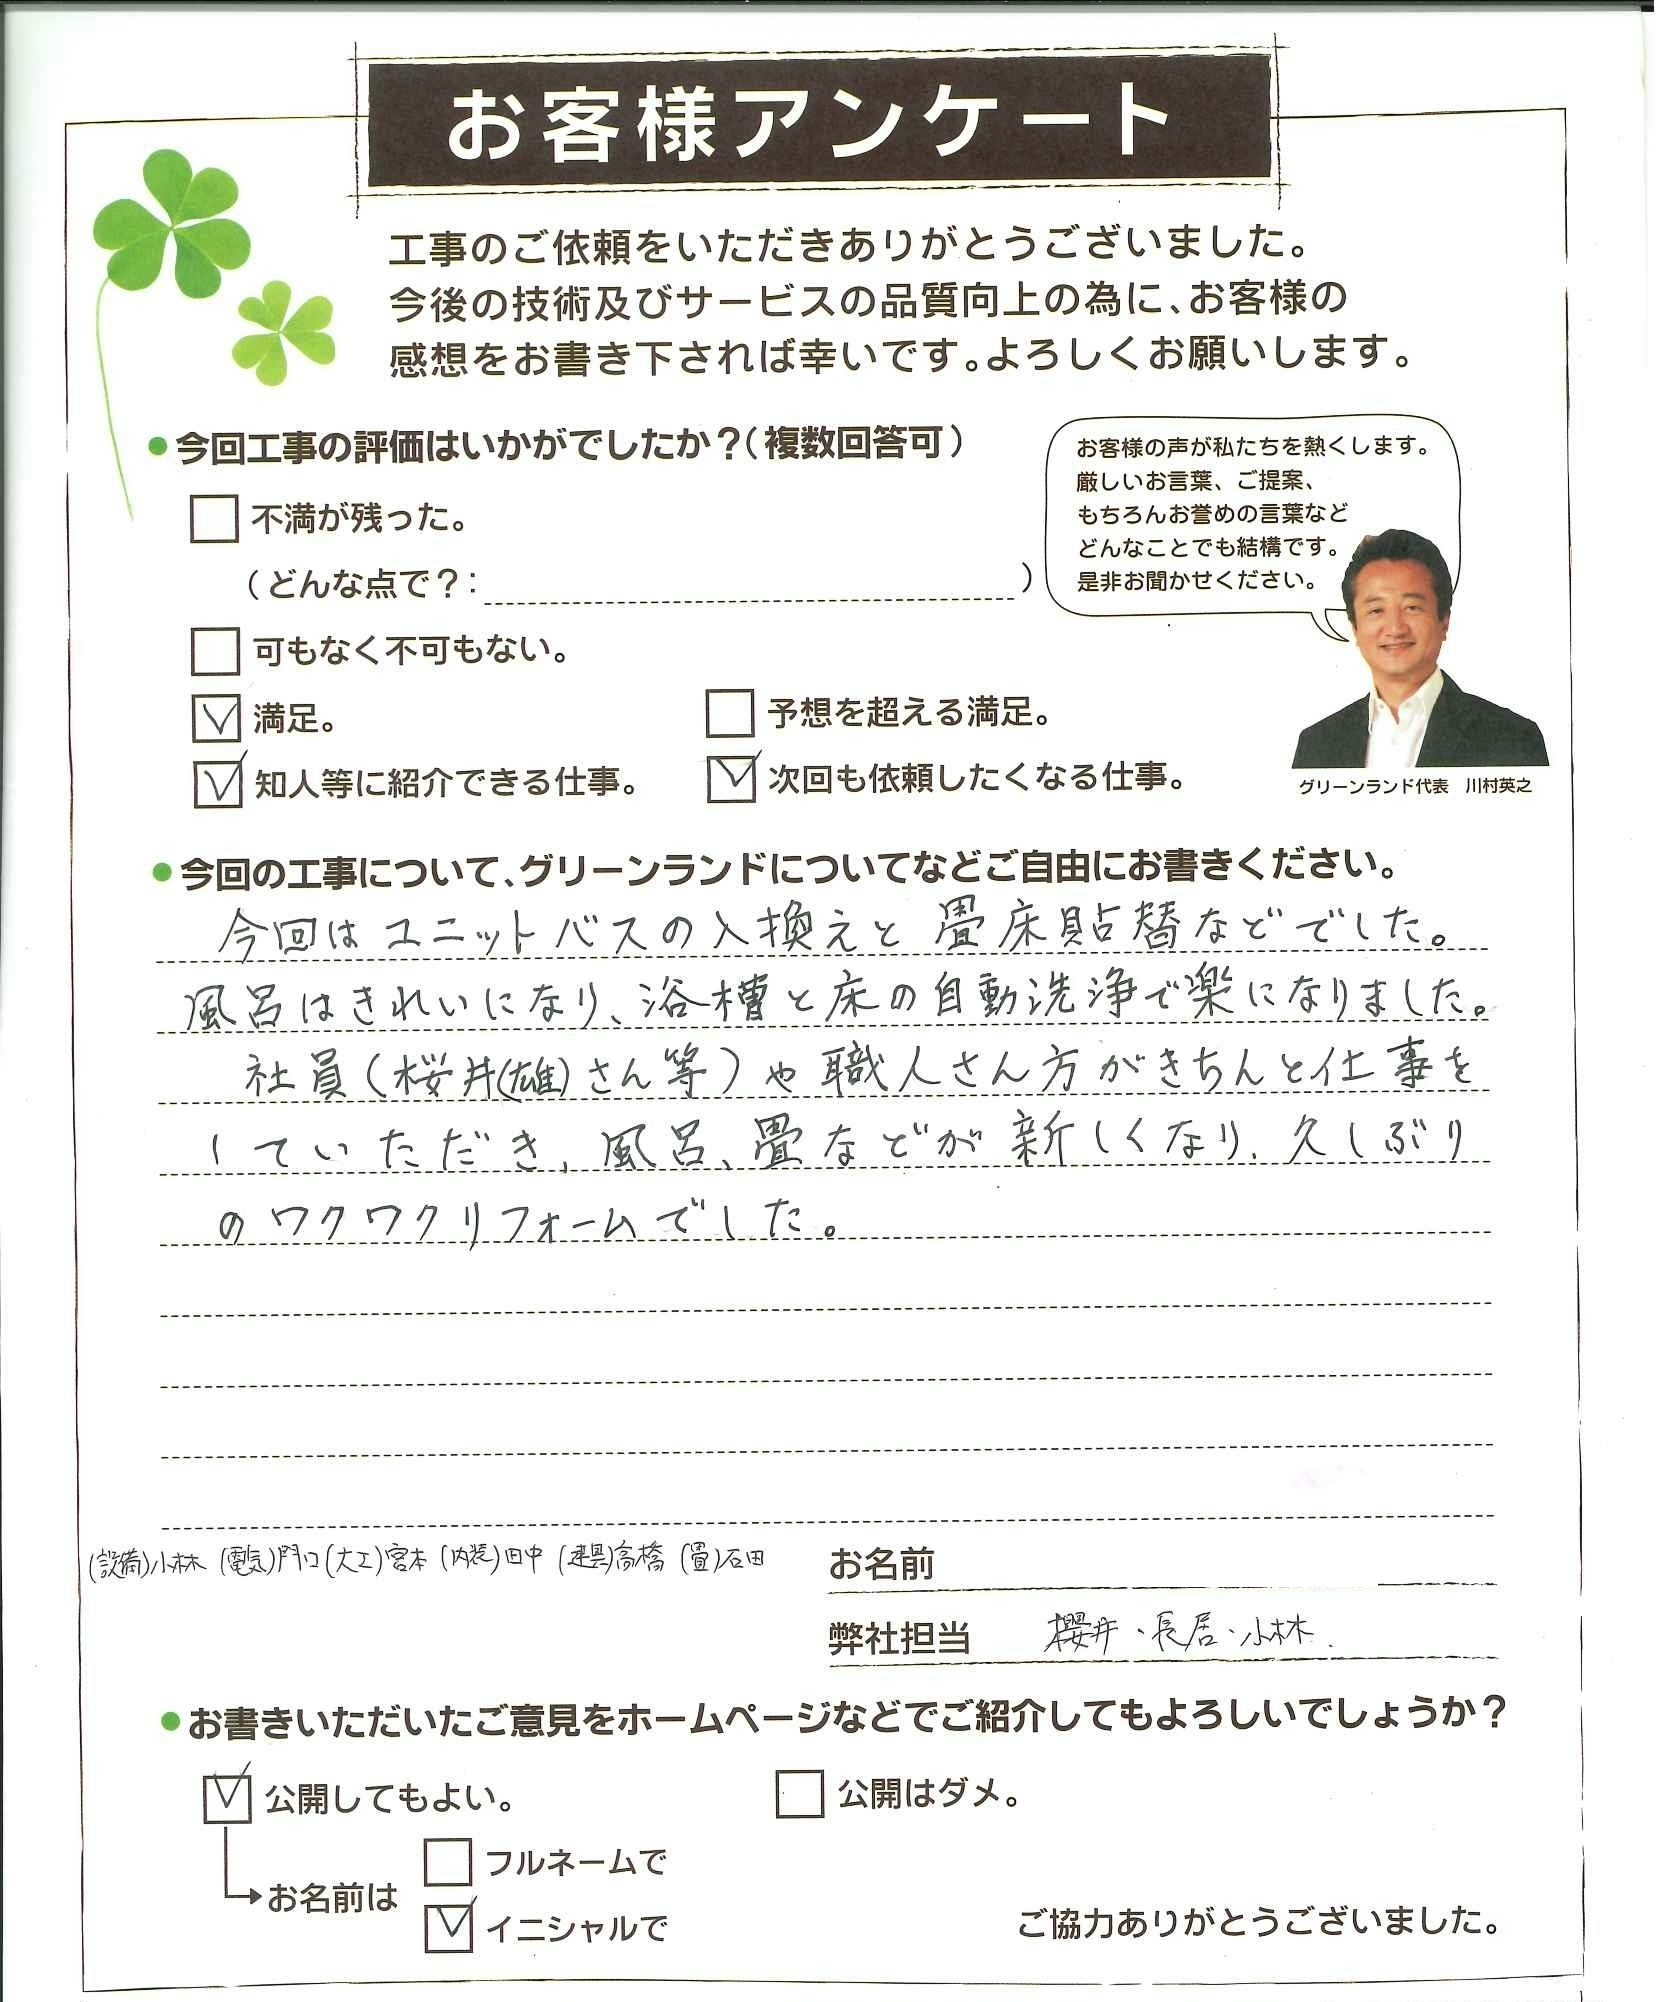 お客様アンケート
工事のご依頼をいただきありがとうございました。
今後の技術及びサービスの品質向上の為に、お客様の
感想をお書き下されば幸いです。よろしくお願いします。
●今回工事の評価はいかがでしたか？（複数回答可）
不満が残った。
（どんな点で？： ）
可もなく不可もない。
満足。
予想を超える満足。
知人等に紹介できる仕事。
次回も依頼したくなる仕事。
お客様の声が私たちを熱くします。
厳しいお言葉、ご提案、
もちろんお誉めの言葉など
どんなことでも結構です。
是非お聞かせください。
グリーンランド代表 川村英之
●今回の工事について、グリーンランドについてなどご自由にお書きください。
今回はユニットバスの入換えと畳床貼替などでした。
風呂はきれいになり、浴槽と床の自動洗浄で楽になりました。
社員（桜井(雄)さん等）や職人さん方がきちんと仕事を
していただき、風呂、畳などが新しくなり、久しぶり
のワクワクリフォームでした。
(設備)小林 (電気)門口 (大工)宮本 (内装)田中 (建具)高橋 (畳)石田
お名前
弊社担当 櫻井・長居・小林
●お書きいただいたご意見をホームページなどでご紹介してもよろしいでしょうか？
公開してもよい。
公開はダメ。
お名前は
フルネームで
イニシャルで
ご協力ありがとうございました。